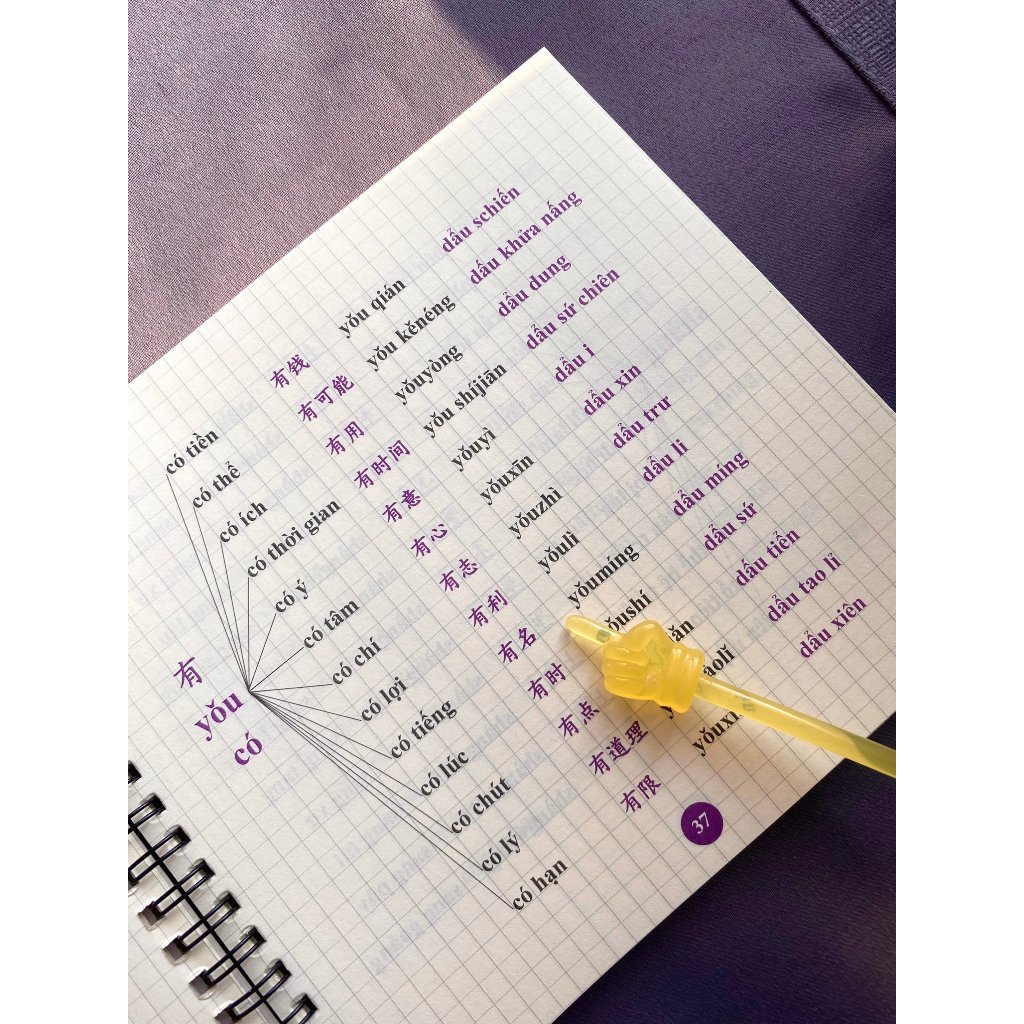 有
yǒu
có
có tiền 有钱 yǒu qián dẩu schiến
có thể 有可能 yǒu kěnéng dấu khửa nấng
có ích 有用 yǒuyòng dẩu dung
có thời gian 有时间 yǒu shíjiān dẩu sứ chiên
có ý 有意 yǒuyì dẩu i
có tâm 有心 yǒuxīn dẩu xin
có chí 有志 yǒuzhì dẩu trư
có lợi 有利 yǒulì dẩu li
có tiếng 有名 yǒumíng dẩu míng
có lúc 有时 ǒushí dẩu sứ
có chút 有点 ǎn dấu tiển
có lý 有道理 àolǐ dẩu tao lỉ
có hạn 有限 yǒuxi dẩu xiên
37